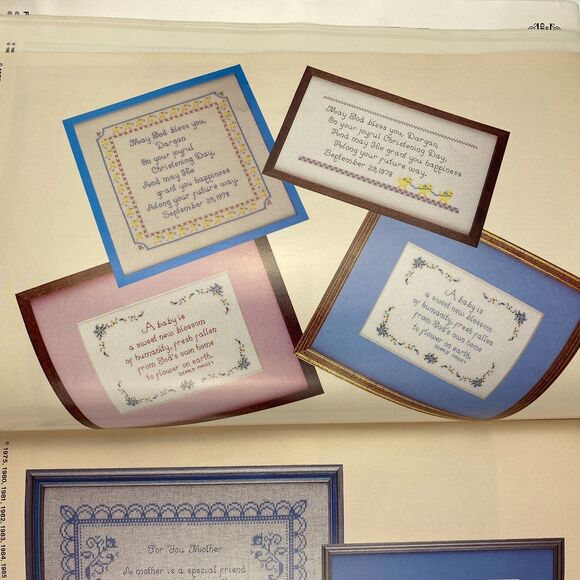 May God bless you,
Dargan
On your joyful
Christening Day,
And may He
grant you happiness
Along your future way.
September 23, 1978
May God bless you, Dargan,
On your joyful Christening Day,
And may He grant you happiness
Along your future way.
September 23, 1978
A baby is
a sweet new blossom
of humanity, fresh fallen
from God's own home
to flower on earth.
GERALD MASSEY
A baby is
a sweet new blossom
of humanity, fresh fallen
from God's own home
to flower on earth.
GERALD MASSEY
© 1975, 1980, 1981, 1982, 1983, 1984, 1985
For You Mother
A mother is a special friend